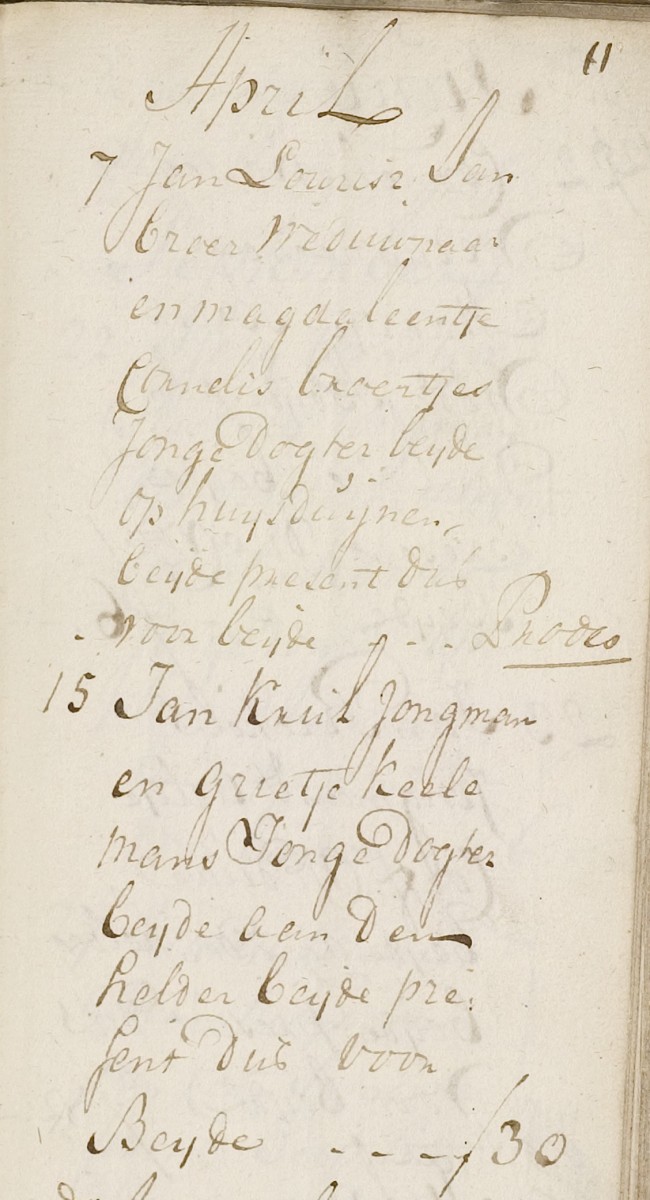 11
April
7 Jan Lourisz Jan
broer Weduwnaar
en magdaleentje
Cornelis broertjes
Jonge Dogter beyde
op huysduÿnen
beyde present dus
voor beyde - - - Prodeo
15 Jan Kruil Jongman
en Grietje keele
mans Jonge Dogter
beyde aan Den
helder beyde pre:
sent Dus voor
Beyde - - - - f 30